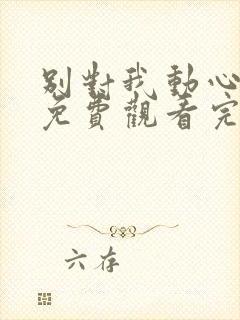 別對我動心
免費觀看完
六存